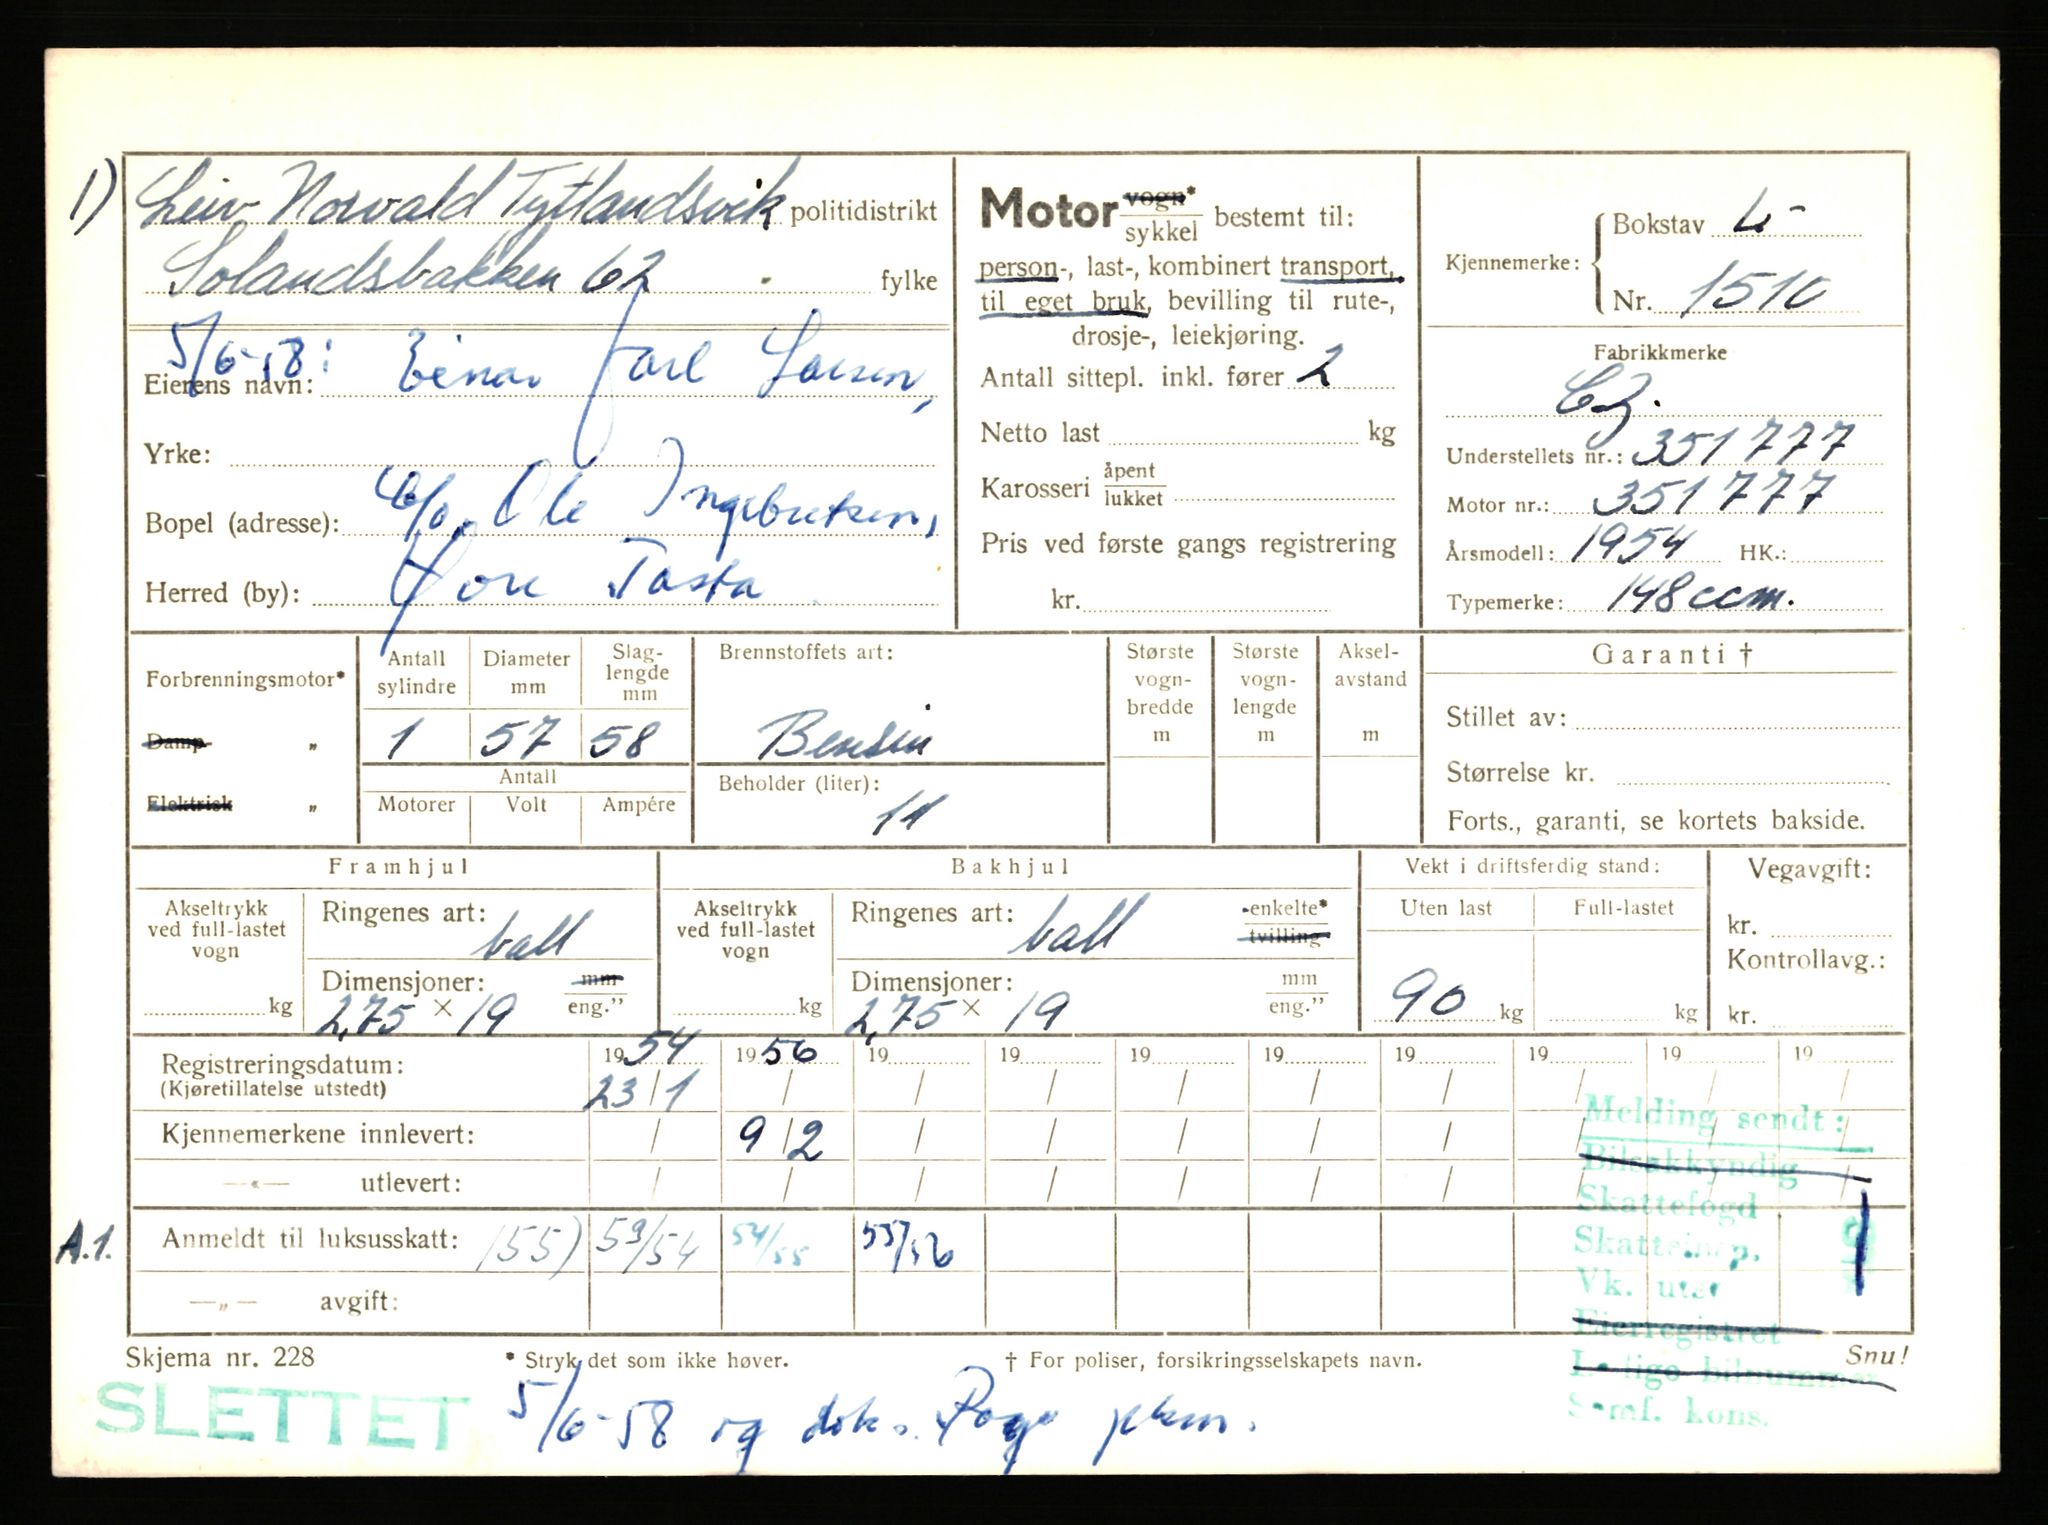 1) Leiv Norvald Tytlandsvik politidistrikt
Solandsbakken 62 fylke
5/6-58: Einar Jarl Larsen,
Eierens navn:
Yrke:
Bopel (adresse): c/o. Ole Ingebretsen,
Herred (by): Øvre Tasta
Motor vogn* sykkel bestemt til:
person-, last-, kombinert transport,
til eget bruk, bevilling til rute-,
drosje-, leiekjøring.
Antall sittepl. inkl. fører 2
Netto last kg
Karosseri åpent lukket
Pris ved første gangs registrering
kr.
Kjennemerke: Bokstav L-
Nr. 1510
Fabrikkmerke
CZ.
Understellets nr.: 351777
Motor nr.: 351777
Årsmodell: 1954 HK.:
Typemerke: 148 ccm.
Forbrenningsmotor*
Damp- „
Elektrisk „
Antall sylindre
Diameter mm
Slag-lengde mm
1 57 58
Antall
Motorer Volt Ampére
Brennstoffets art:
Bensin
Beholder (liter):
11
Største vogn-bredde m
Største vogn-lengde m
Aksel-avstand m
Garanti †
Stillet av:
Størrelse kr.
Forts., garanti, se kortets bakside.
Framhjul
Akseltrykk ved full-lastet vogn
kg
Ringenes art: ball
Dimensjoner: mm
2,75 × 19 eng.”
Bakhjul
Akseltrykk ved full-lastet vogn
kg
Ringenes art: ball enkelte* tvilling
Dimensjoner: mm
2,75 × 19 eng.”
Vekt i driftsferdig stand:
Uten last Full-lastet
90 kg kg
Vegavgift:
kr.
Kontrollavg.:
kr.
Registreringsdatum: 1954 1956 19 19 19 19 19 19 19 19
(Kjøretillatelse utstedt) 23/1
Kjennemerkene innlevert: 9/2
—«— utlevert:
A.1. Anmeldt til luksusskatt: 155) 53/54 54/55 55/56
—„— avgift:
Melding sendt:
Bilsakkyndig
Skattefogd
Vk.
Eierregistret
kons.
Skjema nr. 228 * Stryk det som ikke høver. † For poliser, forsikringsselskapets navn. Snu!
SLETTET
5/6-58 og dok.